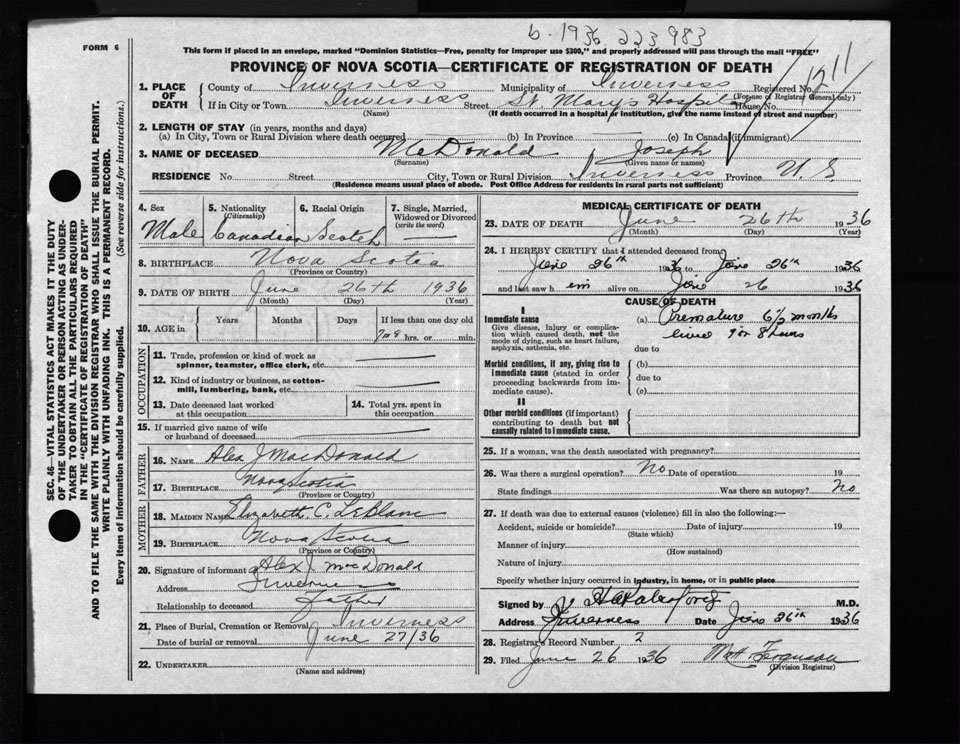 b. 1936 223983
FORM 6
This form if placed in an envelope, marked "Dominion Statistics—Free, penalty for improper use $300," and properly addressed will pass through the mail "FREE"
PROVINCE OF NOVA SCOTIA—CERTIFICATE OF REGISTRATION OF DEATH
SEC. 46—VITAL STATISTICS ACT MAKES IT THE DUTY
OF THE UNDERTAKER OR PERSON ACTING AS UNDER-
TAKER TO OBTAIN ALL THE PARTICULARS REQUIRED
IN THE "CERTIFICATE OF REGISTRATION OF DEATH"
AND TO FILE THE SAME WITH THE DIVISION REGISTRAR WHO SHALL ISSUE THE BURIAL PERMIT.
WRITE PLAINLY WITH UNFADING INK. THIS IS A PERMANENT RECORD.
Every item of information should be carefully supplied. (See reverse side for instructions.)
1. PLACE OF DEATH
County of Inverness Municipality of Inverness Registered No. 1211
(For use of Registrar General only)
If in City or Town Inverness Street St. Mary's Hospital House No.
(Name) (If death occurred in a hospital or institution, give the name instead of street and number)
2. LENGTH OF STAY (in years, months and days)
(a) In City, Town or Rural Division where death occurred (b) In Province (c) In Canada (if immigrant)
3. NAME OF DECEASED McDonald Joseph
(Surname) (Given name or names)
RESIDENCE No. Street City, Town or Rural Division Inverness Province N. S.
(Residence means usual place of abode. Post Office Address for residents in rural parts not sufficient)
4. Sex 5. Nationality (Citizenship) 6. Racial Origin 7. Single, Married, Widowed or Divorced (write the word)
Male Canadian Scotch
8. BIRTHPLACE Nova Scotia
(Province or Country)
9. DATE OF BIRTH June 26th 1936
(Month) (Day) (Year)
10. AGE in Years Months Days If less than one day old
7 or 8 hrs. or min.
OCCUPATION
11. Trade, profession or kind of work as spinner, teamster, office clerk, etc.
12. Kind of industry or business, as cotton-mill, lumbering, bank, etc.
13. Date deceased last worked at this occupation 14. Total yrs. spent in this occupation
15. If married give name of wife or husband of deceased
FATHER
16. NAME Alex J. MacDonald
17. BIRTHPLACE Nova Scotia
(Province or Country)
MOTHER
18. MAIDEN NAME Elizabeth C. LeBlanc
19. BIRTHPLACE Nova Scotia
(Province or Country)
20. Signature of informant Alex J. MacDonald
Address Inverness
Relationship to deceased Father
21. Place of Burial, Cremation or Removal Inverness
Date of burial or removal June 27/36
22. UNDERTAKER
(Name and address)
MEDICAL CERTIFICATE OF DEATH
23. DATE OF DEATH June 26th 1936
(Month) (Day) (Year)
24. I HEREBY CERTIFY that I attended deceased from
June 26th 1936 to June 26th 1936
and last saw h im alive on June 26 1936
CAUSE OF DEATH
I
Immediate cause
Give disease, injury or complication which caused death, not the mode of dying, such as heart failure, asphyxia, asthenia, etc.
(a) Premature 6½ months
lived 7 or 8 hours
due to
Morbid conditions, if any, giving rise to immediate cause (stated in order proceeding backwards from immediate cause).
(b)
due to
(c)
II
Other morbid conditions (if important) contributing to death but not causally related to immediate cause.
25. If a woman, was the death associated with pregnancy?
26. Was there a surgical operation? No Date of operation 19
State findings Was there an autopsy? No
27. If death was due to external causes (violence) fill in also the following:—
Accident, suicide or homicide? Date of injury 19
(State which)
Manner of injury
(How sustained)
Nature of injury
Specify whether injury occurred in industry, in home, or in public place
Signed by M.D.
Address Inverness Date June 26th 1936
28. Registrar's Record Number 2
29. Filed June 26 1936 Ferguson
(Division Registrar)